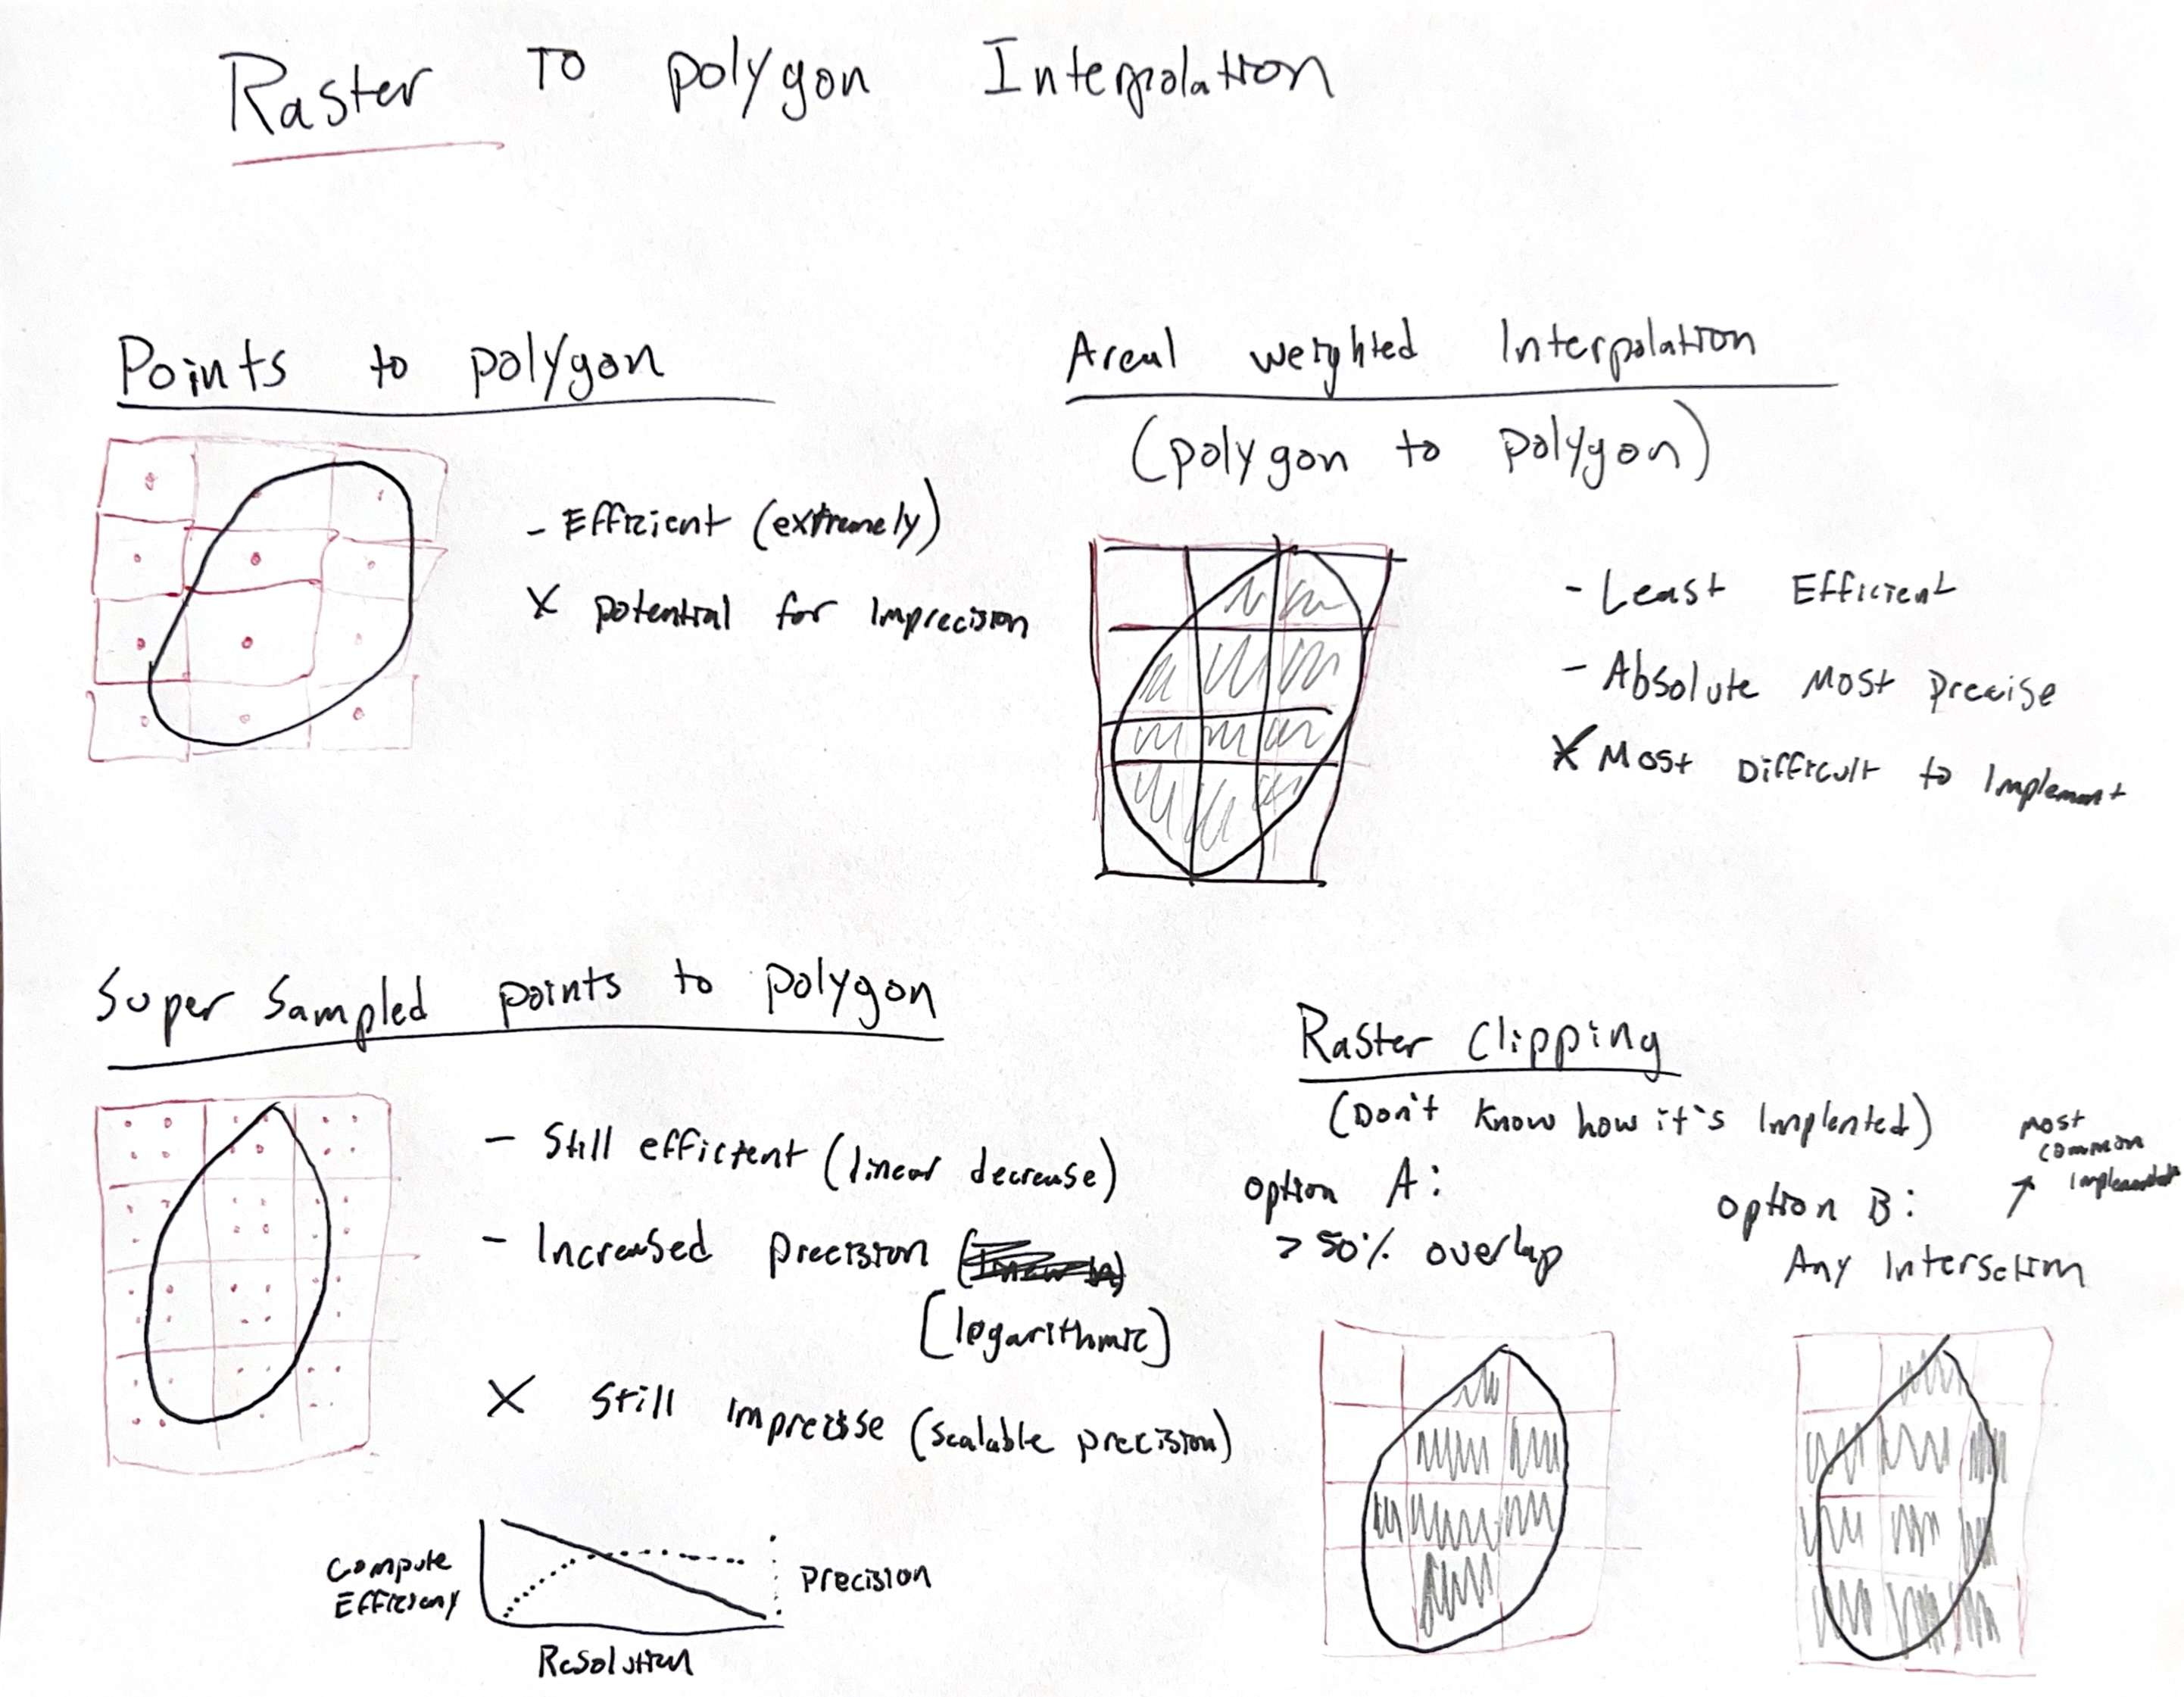 Raster To polygon Interpolation
Points to polygon
- Efficient (extremely)
X potential for Imprecision
Areal weighted Interpolation
(polygon to polygon)
- Least Efficient
- Absolute Most Precise
X Most Difficult to Implement
Super Sampled points to polygon
- Still efficient (linear decrease)
- Increased precision
[logarithmic]
X Still imprecise (scalable precision)
Compute
Efficieny
Precision
Resolution
Raster Clipping
(Don't know how it's Implented)
option A:
> 50% overlap
most
common
option B:
Any Intersection